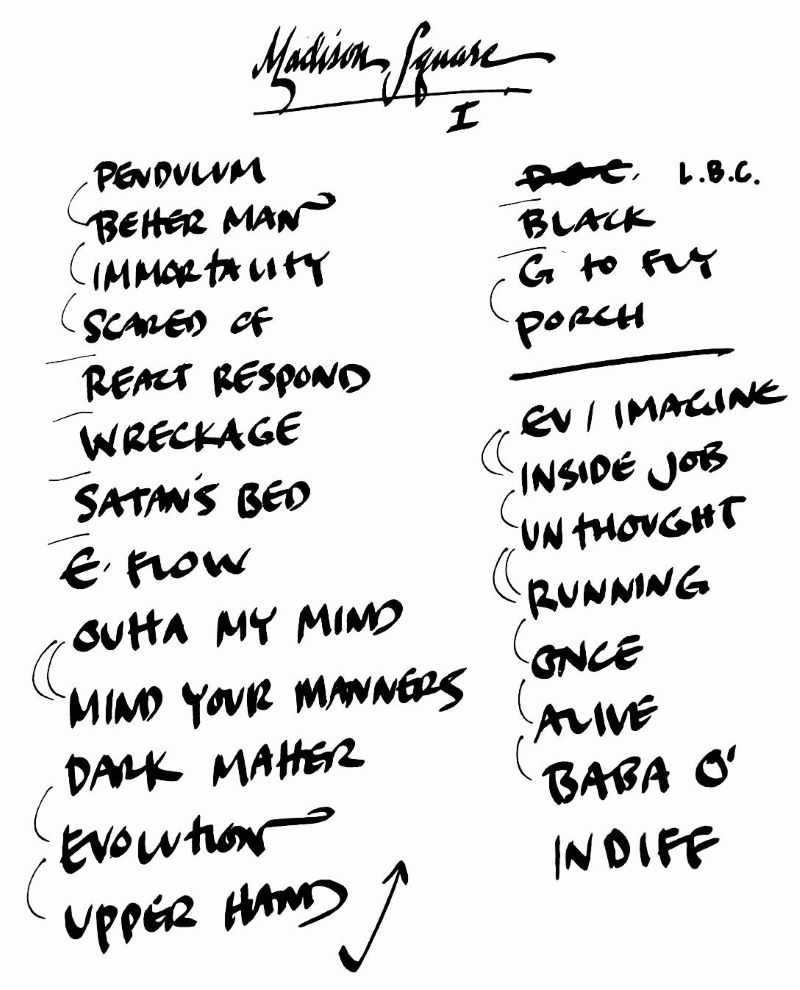 Madison Square
I
PENDULUM
BETTER MAN
IMMORTALITY
SCARED OF
REACT RESPOND
WRECKAGE
SATAN'S BED
E. FLOW
OUTTA MY MIND
MIND YOUR MANNERS
DARK MATTER
EVOLUTION
UPPER HAND
L.B.C.
BLACK
G TO FLY
PORCH
EV / IMAGINE
INSIDE JOB
UNTHOUGHT
RUNNING
ONCE
ALIVE
BABA O'
INDIFF